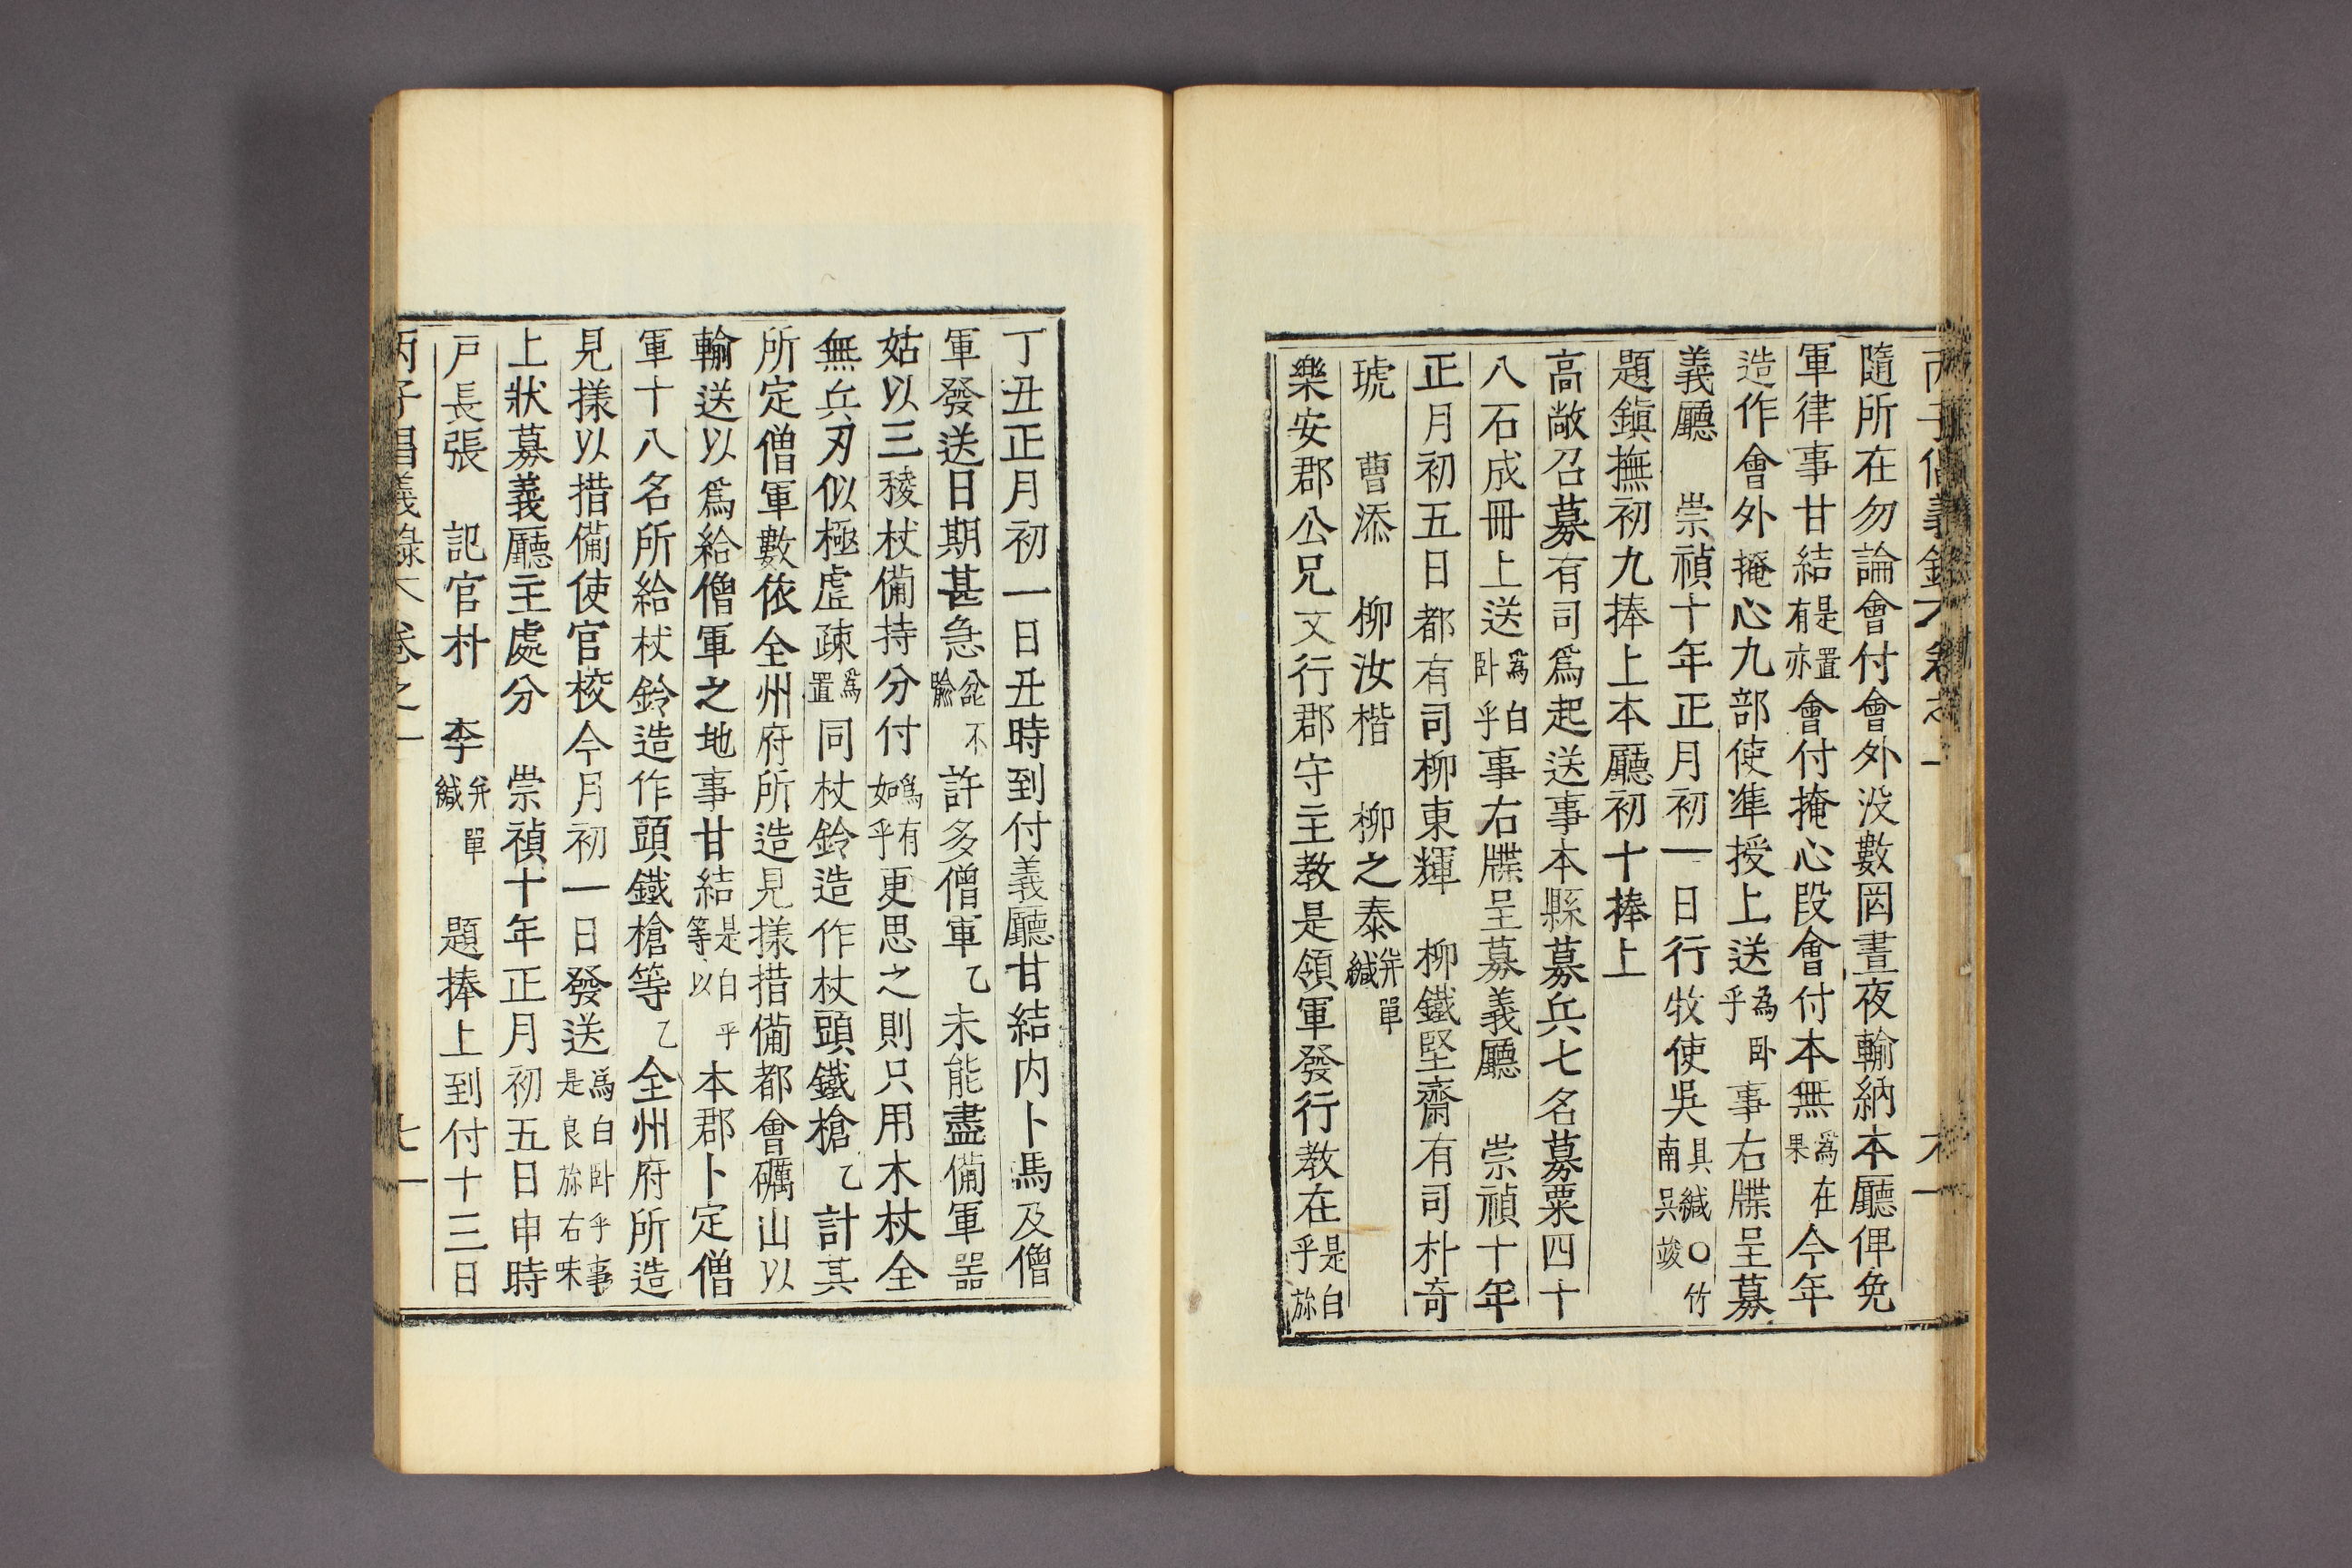 隨所在勿論會付會外沒數罔晝夜輸納本廳俾免
軍律事甘結是置有亦會付掩心段會付本無爲在果今年
造作會外掩心九部使準授上送爲卧乎事右牒呈募
義廳 崇禎十年正月初一日行牧使吳具緘〇竹南吳竣
題鎭撫初九捧上本廳初十捧上
高敞召募有司爲起送事本縣募兵七名募粟四十
八石成冊上送爲白卧乎事右牒呈募義廳 崇禎十年
正月初五日都有司柳東輝 柳鐵堅齋有司朴奇
琥 曹添 柳汝楷 柳之泰并單緘
樂安郡公兄文行郡守主教是領軍發行教在是白乎旀
丁丑正月初一日丑時到付義廳甘結内卜馬及僧
軍發送日期甚急忿不賒許多僧軍乙未能盡備軍器
姑以三稜杖備持分付爲有如乎更思之則只用木杖全
無兵刃似極虛疎爲置同杖鈴造作杖頭鐵槍乙計其
所定僧軍數依全州府所造見㨾措備都會礪山以
輸送以爲給僧軍之地事甘結是白乎等以本郡卜定僧
軍十八名所給杖鈴造作頭鐵槍等乙全州府所造
見㨾以措備使官校今月初一日發送爲白卧乎事是良旀右味
上狀募義廳主處分 崇禎十年正月初五日申時
戶長張 記官朴 李并單緘 題捧上到付十三日
丙子昌義錄 卷之一 七一